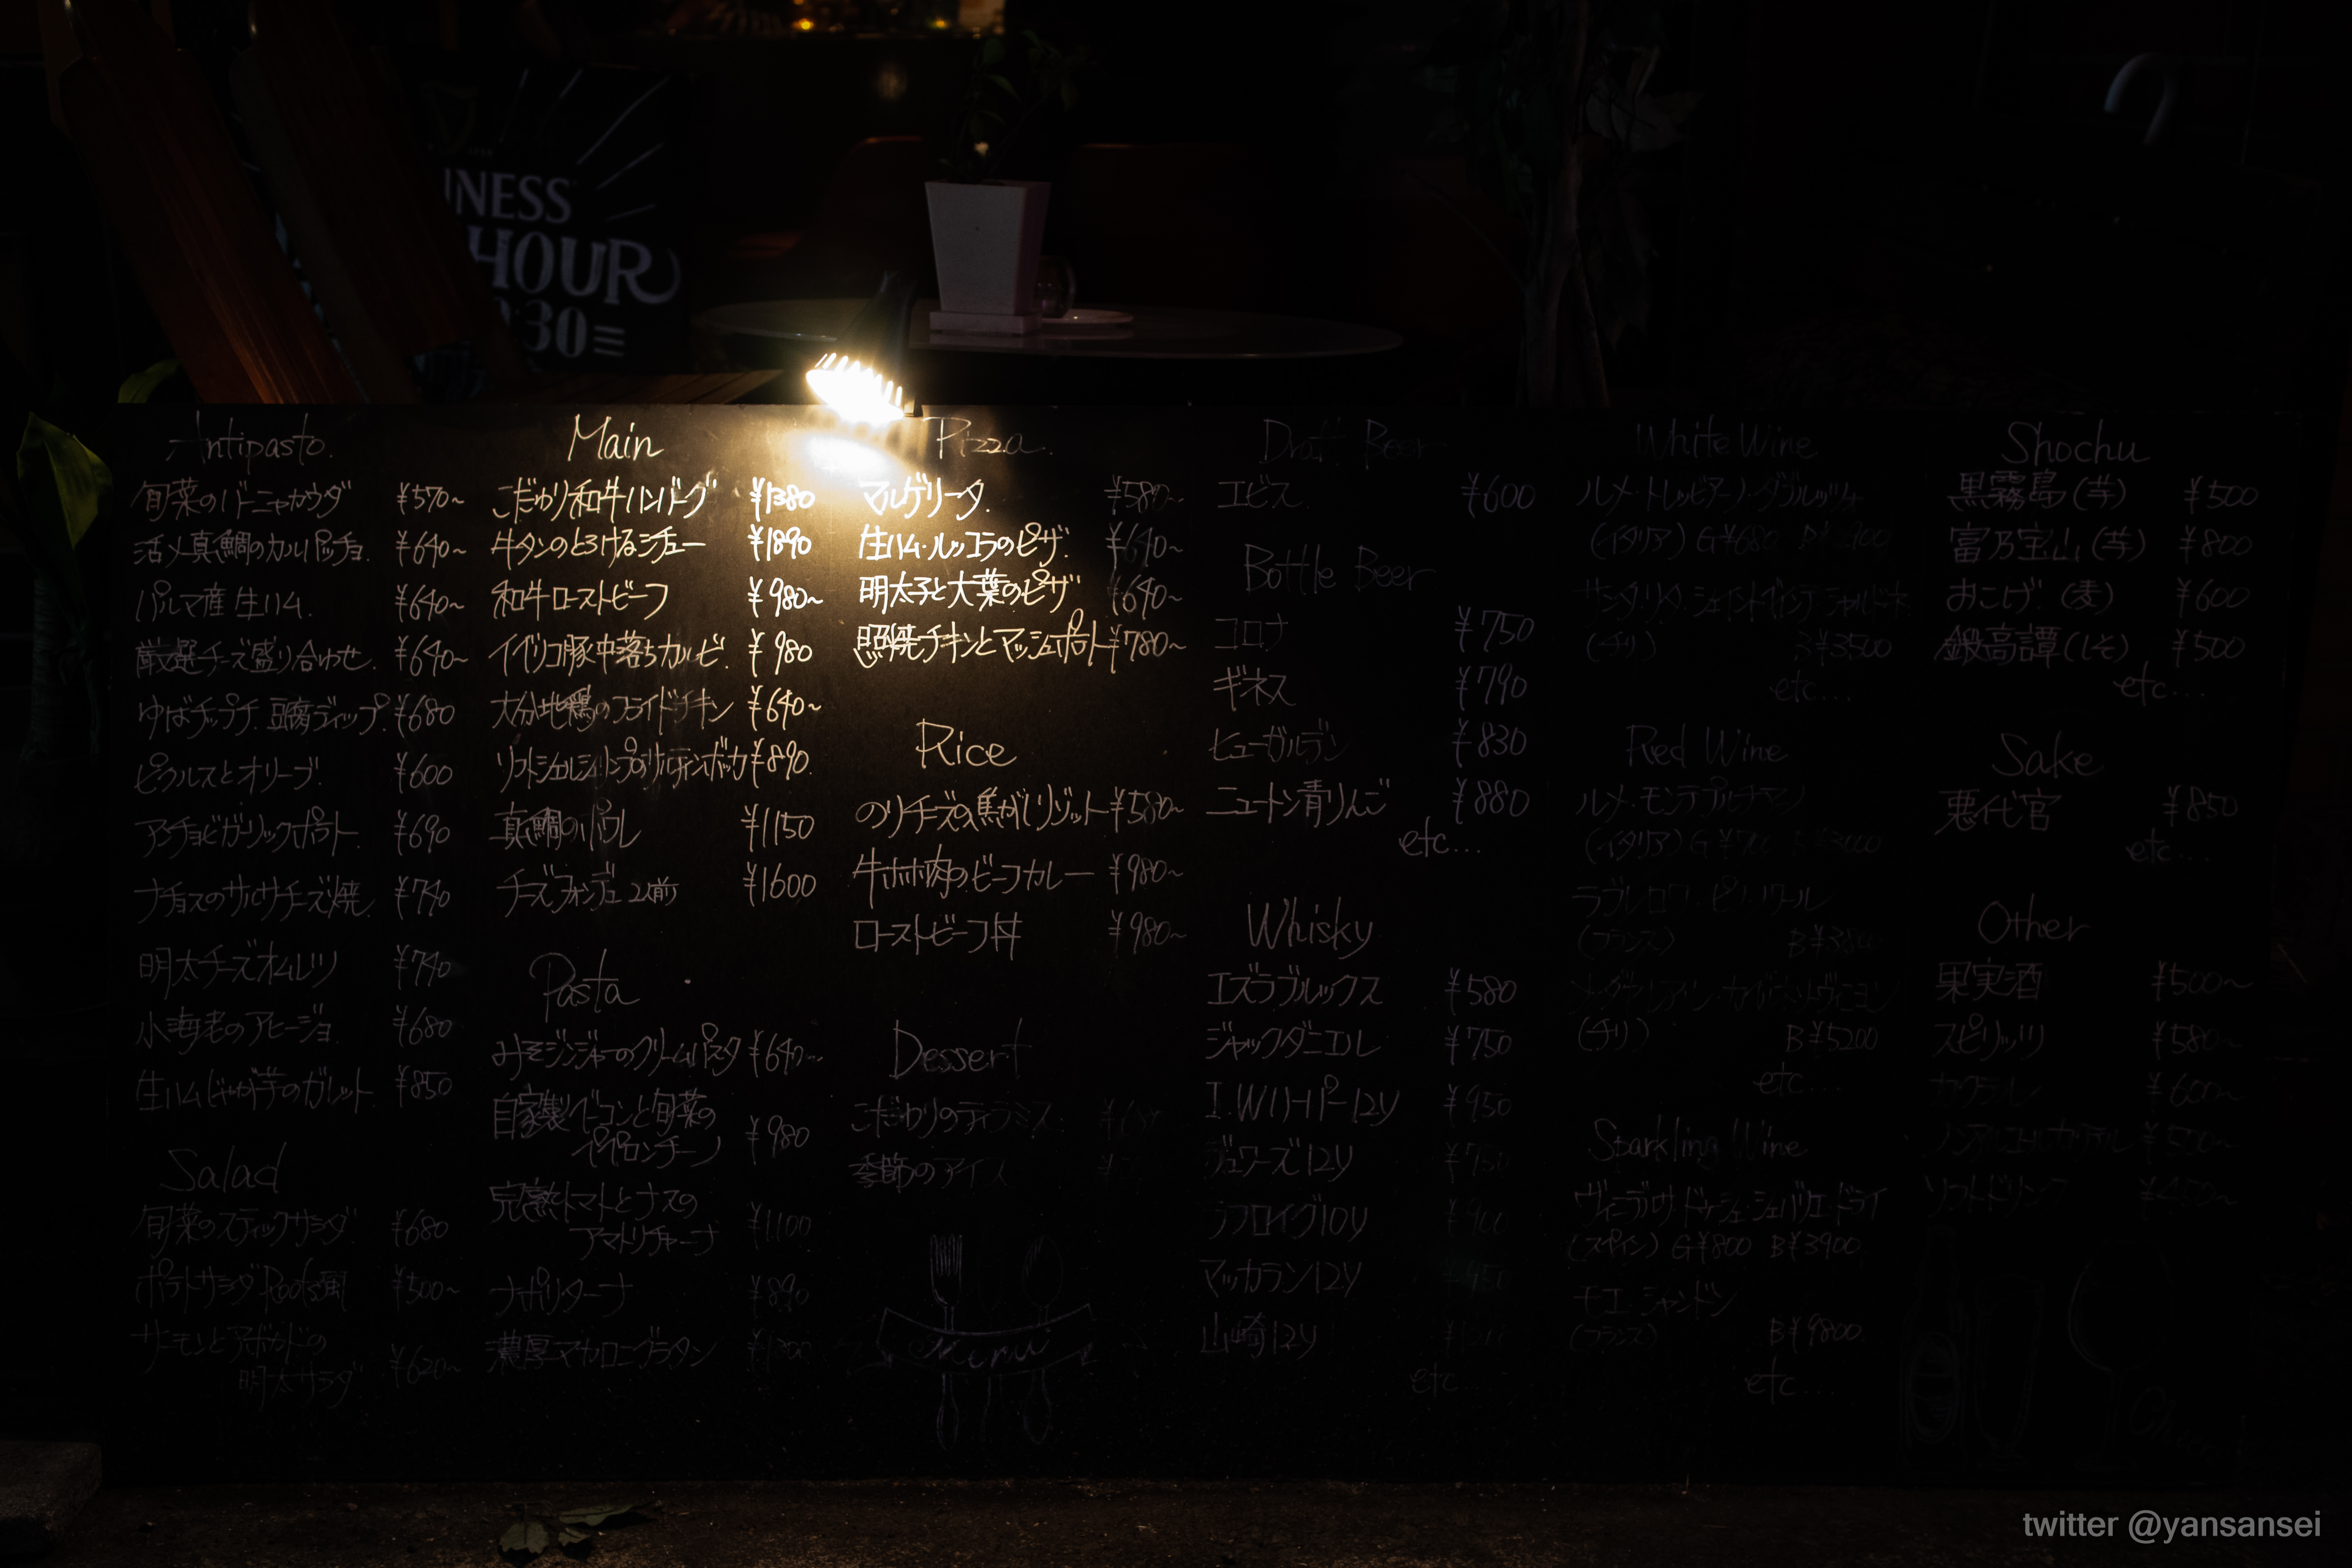 NESS
HOUR
30
Antipasto.
旬菜のバーニャカウダ ¥570~
活〆真鯛のカルパッチョ. ¥640~
パルマ産生ハム. ¥640~
厳選チーズ盛り合わせ. ¥640~
ゆばチップチ.豆腐ディップ. ¥680
ピクルスとオリーブ. ¥600
アンチョビガーリックポテト. ¥690
ナチョスのサルサチーズ焼. ¥740
明太チーズオムレツ ¥740
小海老のアヒージョ ¥680
生ハムじゃが芋のガレット. ¥850
Salad
旬菜のスティックサラダ ¥680
ポテトサラダRoots風 ¥500~
サーモンとアボカドの
明太サラダ ¥620~
Main
こだわり和牛ハンバーグ ¥1380
牛タンのとろけるシチュー ¥1890
和牛ローストビーフ ¥980~
イベリコ豚中落ちカルビ. ¥980
大分地鶏のフライドチキン ¥640~
ソフトシェルシュリンプのサルティンボッカ ¥890.
真鯛のポワレ ¥1150
チーズフォンデュ 2人前 ¥1600
Pasta
みそジンジャーのクリームパスタ ¥640~
自家製ベーコンと旬菜の
ペペロンチーノ ¥980
完熟トマトとナスの
アマトリチャーナ ¥1100
ナポリターナ ¥890
濃厚マカロニグラタン
Pizza.
マルゲリータ. ¥580~
生ハム・ルッコラのピザ. ¥640~
明太子と大葉のピザ ¥640~
照焼チキンとマッシュポテト ¥780~
Rice
のりチーズの焦がしリゾット ¥580~
牛ホホ肉のビーフカレー ¥980~
ローストビーフ丼 ¥980~
Dessert
こだわりのティラミス
季節のアイス
Menu
Draft Beer
エビス ¥600
Bottle Beer
コロナ ¥750
ギネス ¥790
ヒューガルデン ¥830
ニュートン青りんご ¥880
etc...
Whisky
エズラブルックス ¥580
ジャックダニエル ¥750
I.Wハーパー12y ¥950
デュワーズ12y ¥750
ラフロイグ10y ¥900
マッカラン12y ¥950
山崎12y
etc...
White Wine
ルメ・トレッビアーノ・ダブルッツォ
(イタリア) G¥680
サンタ・リタ・
(チリ) ¥3500
etc...
Red Wine
ルメ・モンテプルチアーノ
(イタリア)
ラブレロワ・ピノ・ノワール
(フランス)
(チリ) B¥5200
etc...
Sparkling Wine
ヴィーニデルサ・ドゥーシェ・シュバリエ・ドライ
(スペイン) G¥800 B¥3900
モエ・シャンドン
(フランス) B¥9800
etc...
Shochu
黒霧島(芋) ¥500
富乃宝山(芋) ¥800
おこげ (麦) ¥600
鍛高譚(しそ) ¥500
etc...
Sake
悪代官 ¥850
etc...
Other
果実酒 ¥500~
スピリッツ ¥580~
カクテル ¥600~
ノンアルコールカクテル ¥500~
ソフトドリンク ¥450~
twitter @yansansei